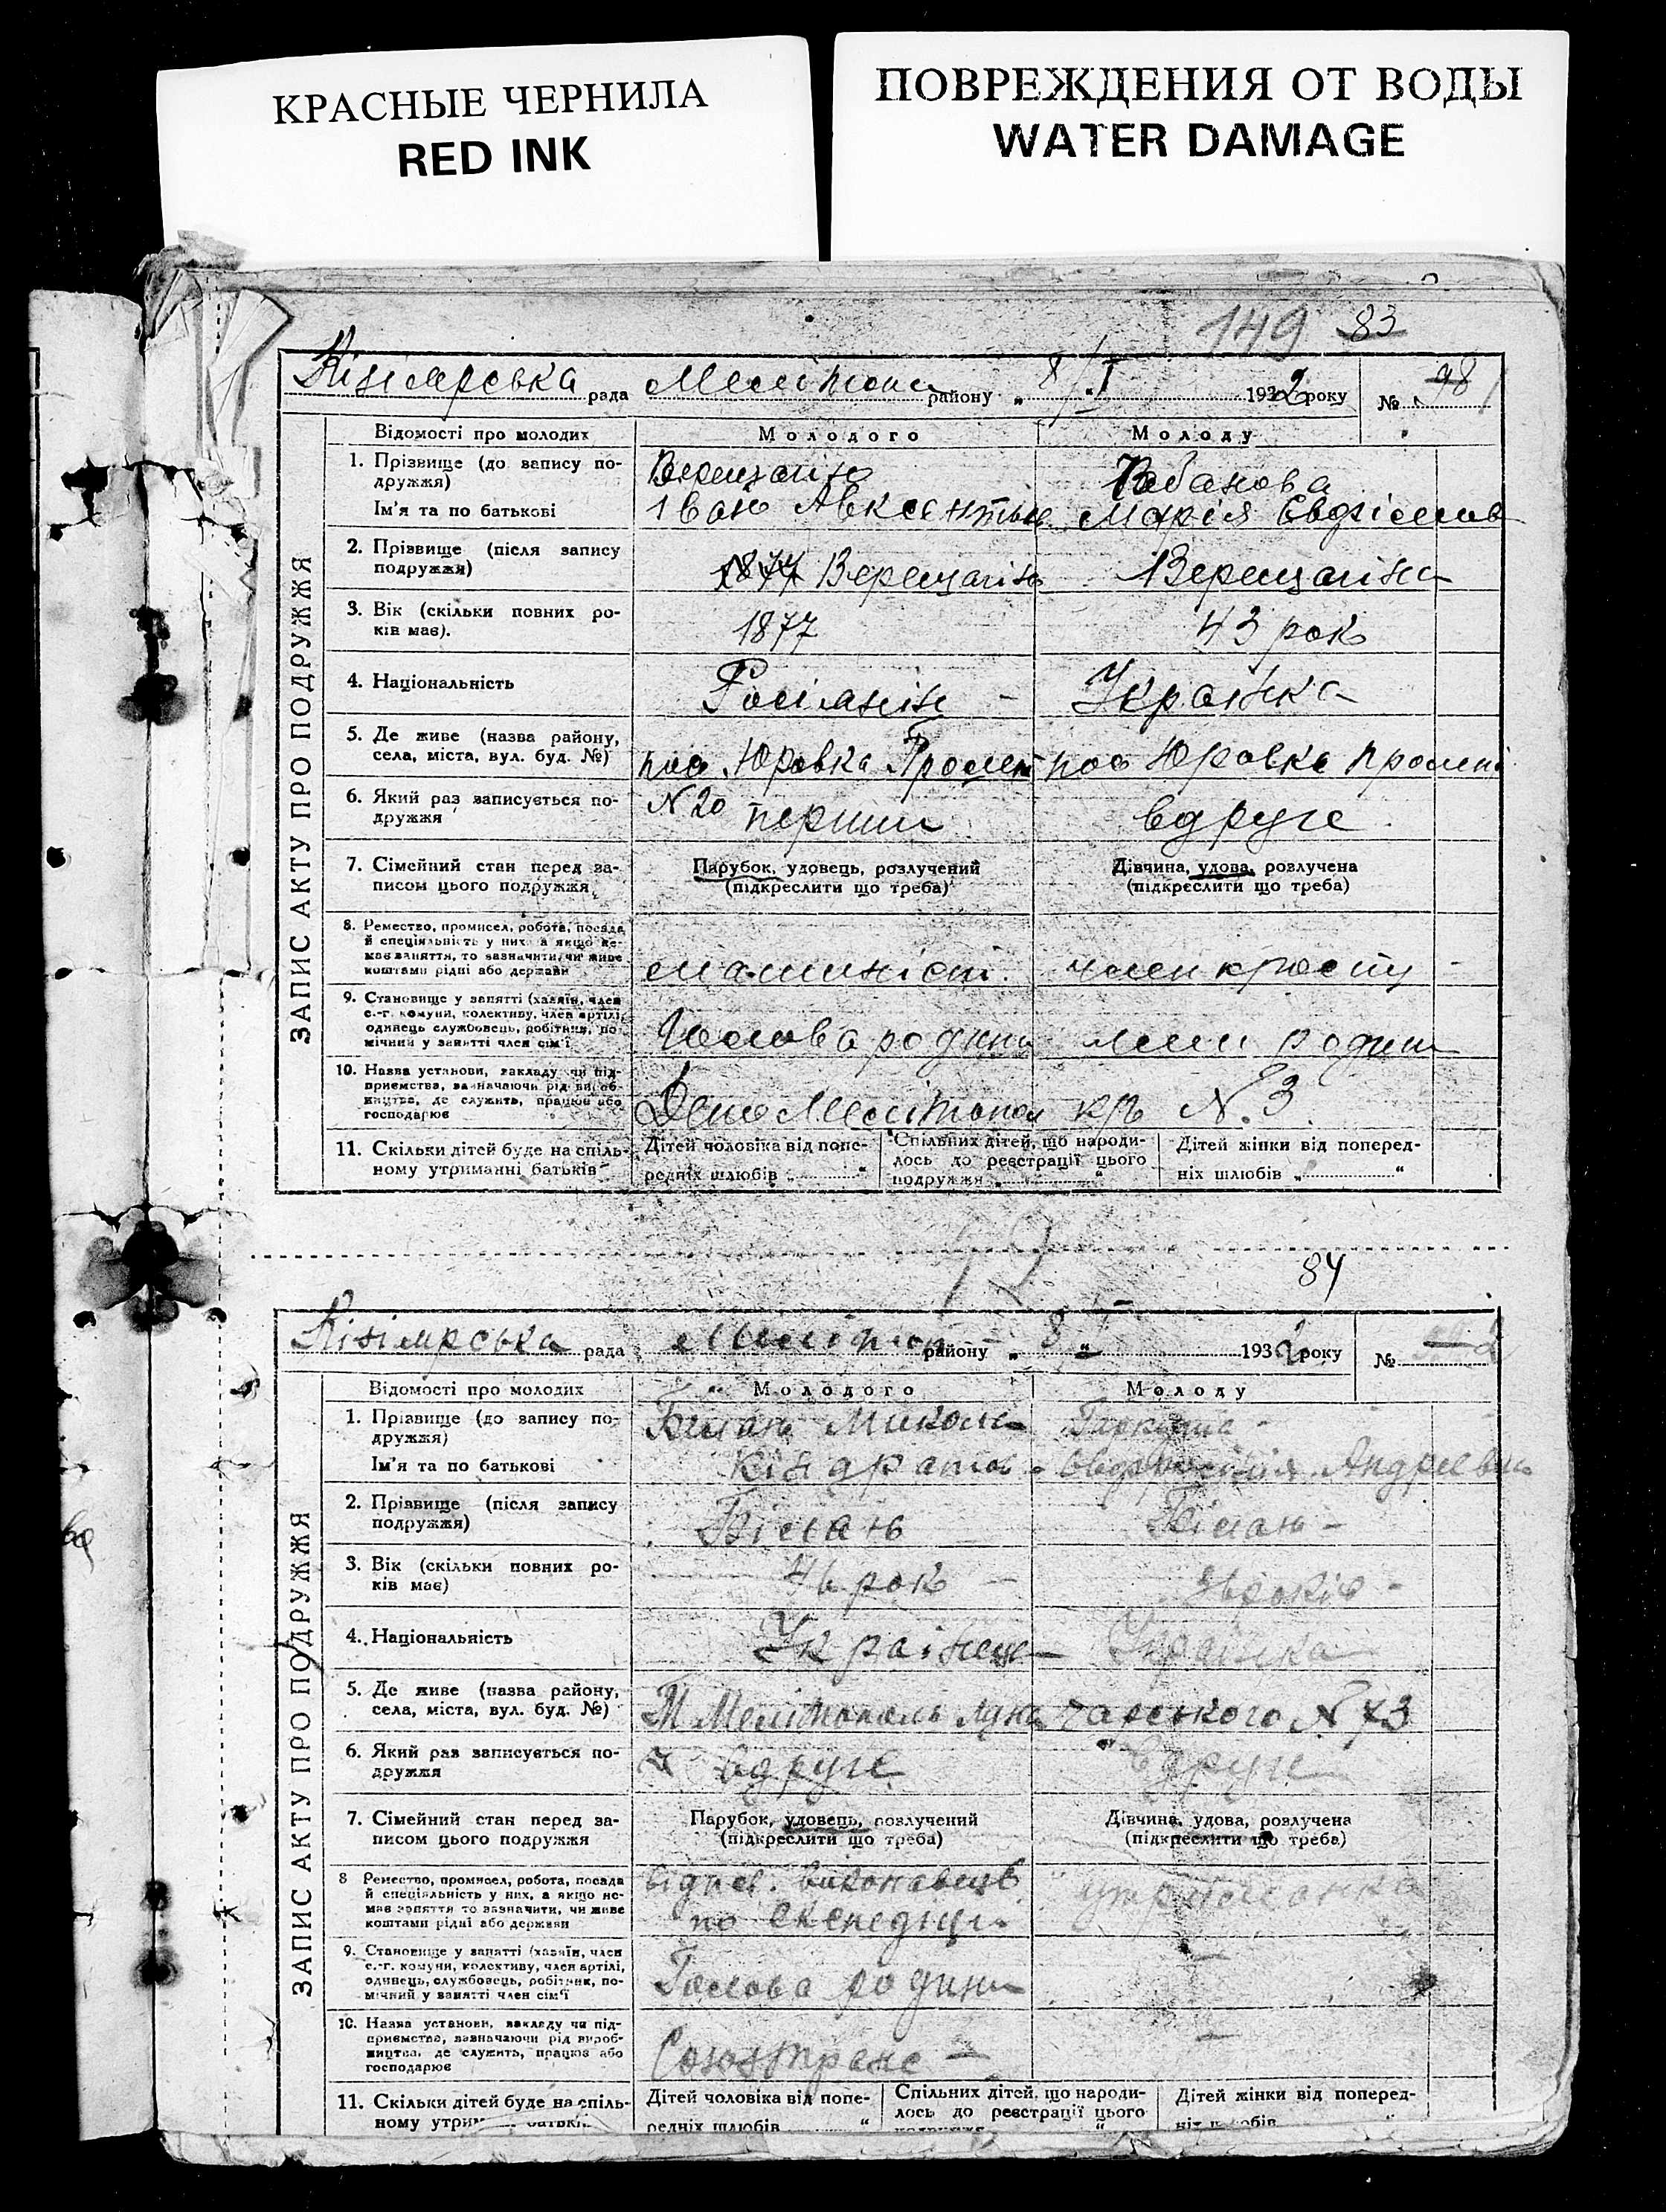 КРАСНЫЕ ЧЕРНИЛА
RED INK
ПОВРЕЖДЕНИЯ ОТ ВОДЫ
WATER DAMAGE
149 83
Кізіярська рада Мелітопи району „ 8 / I 1932 року № 98
ЗАПИС АКТУ ПРО ПОДРУЖЖЯ
Відомості про молодих Молодого Молоду
1. Прізвище (до запису по-
дружжя)
Верещагін
Кабанова
Ім'я та по батькові
Іван Авксентьев Марія
2. Прізвище (після запису
подружжя)
1877 Верещагін Верещагіна
3. Вік (скільки повних ро-
ків має).
1877 43 рок
4. Національність
Росіянін – Українка
5. Де живе (назва району,
села, міста, вул. буд. №)
пос Юровка Пролет пос Юровка Пролет
6. Який раз записується по-
дружжя
N 20 перший вдруге
7. Сімейний стан перед за-
писом цього подружжя
Парубок, удовець, розлучений
(підкреслити що треба)
Дівчина, удова, розлучена
(підкреслити що треба)
8. Ремество, промисел, робота, посада
й спеціяльність у них а якщо не-
має заняття, то зазначити, чи живе
коштами рідні або держави
машиніст. член
9. Становище у занятті (хазяїн, член
с.-г. комуни, колективу, член артілі,
одинець службовець, робітник, по-
мічний у занятті член сім'ї
Голова родини член родини
10. Назва установи, закладу чи під-
приємства, зазначаючи рід вироб-
ництва, де служить, працює або
господарює
Депо Мелітопол N. 3
11. Скільки дітей буде на спіль-
ному утриманні батьків
Дітей чоловіка від попе-
редніх шлюбів „ “
Спільних дітей, що народи-
лось до реєстрації цього
подружжя „ “
Дітей жінки від поперед-
ніх шлюбів „ “
84
Кізіярська рада Мелітоп району „ 8 “ I 1932 року № 2
ЗАПИС АКТУ ПРО ПОДРУЖЖЯ
Відомості про молодих Молодого Молоду
1. Прізвище (до запису по-
дружжя)
Білань Микола Гаркуша
Ім'я та по батькові
Кіндратов Андреевна
2. Прізвище (після запису
подружжя)
Білань Білань –
3. Вік (скільки повних ро-
ків має)
46 рок – років –
4. Національність
Українець Українка
5. Де живе (назва району,
села, міста, вул. буд. №)
М Мелітополь Луначарського N 73
6. Який раз записується по-
дружжя
вдруге вдруге
7. Сімейний стан перед за-
писом цього подружжя
Парубок, удовець, розлучений
(підкреслити що треба)
Дівчина, удова, розлучена
(підкреслити що треба)
8 Ремество, промисел, робота, посада
й спеціяльність у них, а якщо не-
має заняття то зазначити, чи живе
коштами рідні або держави
відпов. виконавець утриманка
по експедиціи
9. Становище у занятті (хазяїн, член
с.-г. комуни, колективу, член артілі,
одинець, службовець, робітник, по-
мічний у занятті член сім'ї
Голова родини –
10. Назва установи, закладу чи під-
приємства, зазначаючи рід вироб-
ництва, де служить, працює або
господарює
Союзтранс – –
11. Скільки дітей буде на спіль-
ному
Дітей чоловіка від попе-
редніх шлюбів “
Спільних дітей, що народи-
лось до реєстрації цього
Дітей жінки від поперед-